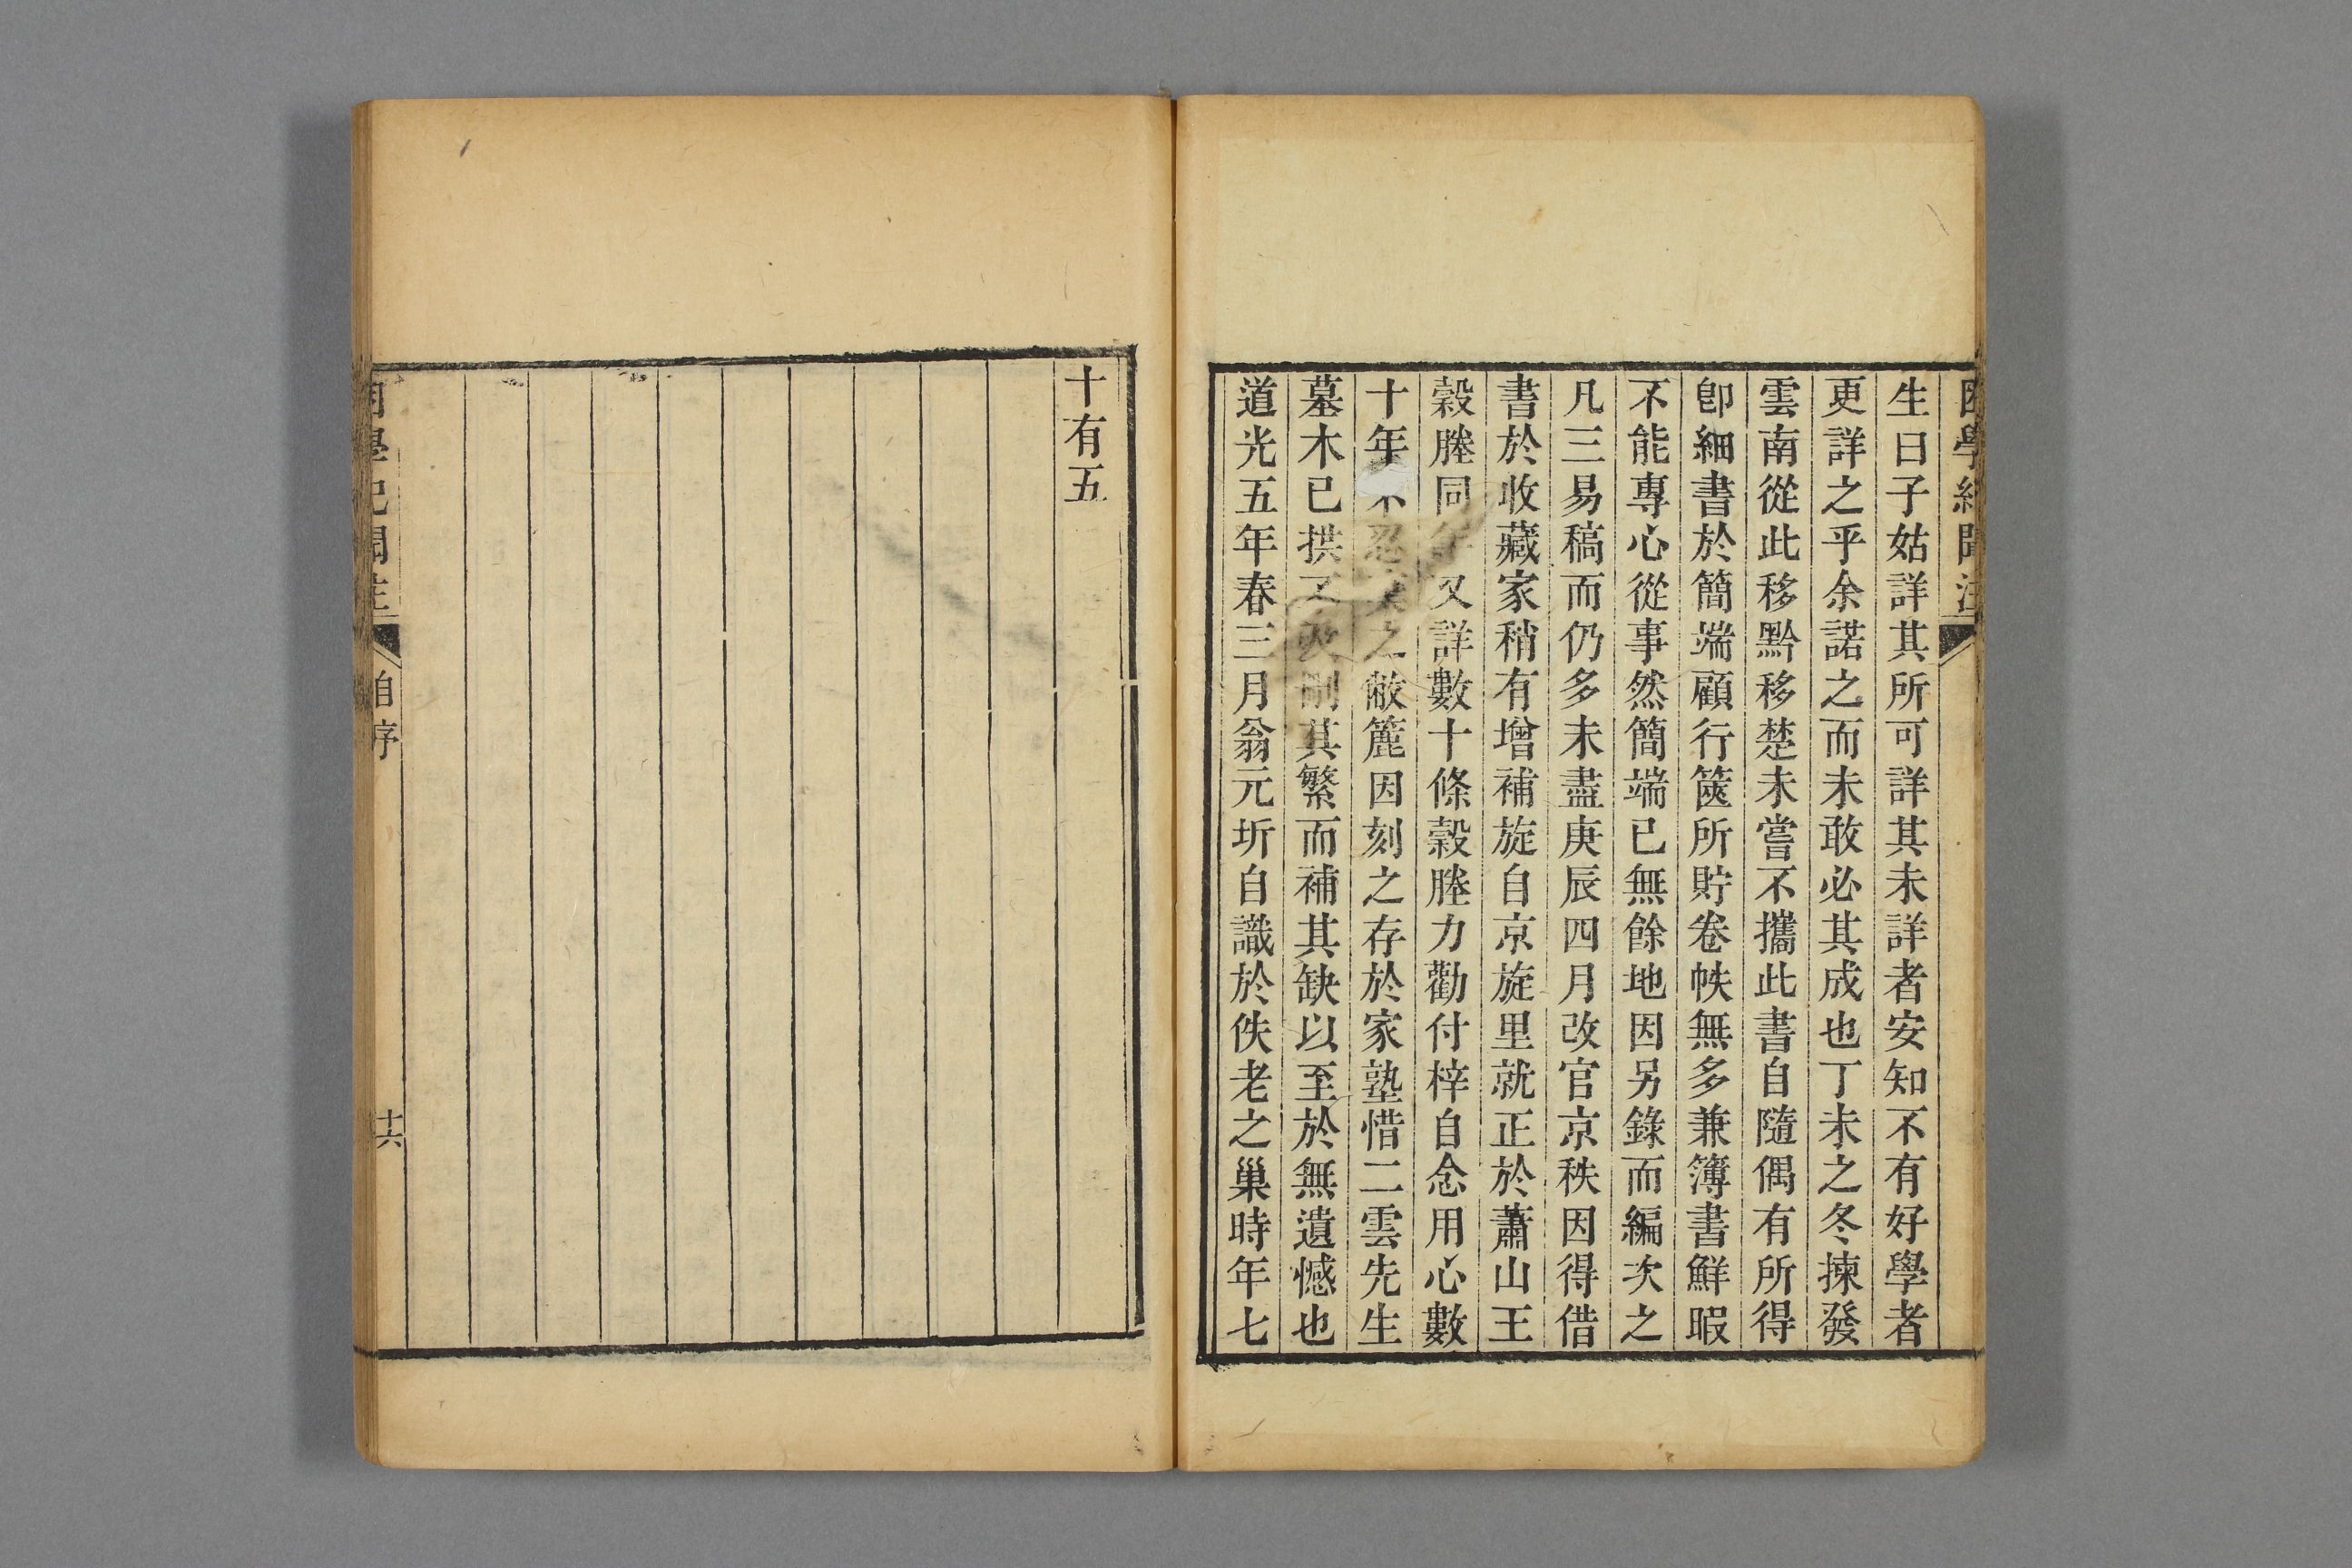 困學紀聞注
生曰子姑詳其所可詳其未詳者安知不有好學者
更詳之乎余諾之而未敢必其成也丁未之冬揀發
雲南從此移黔移楚未嘗不攜此書自隨偶有所得
卽細書於簡端顧行篋所貯卷帙無多兼簿書鮮暇
不能專心從事然簡端已無餘地因另錄而編次之
凡三易稿而仍多未盡庚辰四月改官京秩因得借
書於收藏家稍有增補旋自京旋里就正於蕭山王
穀塍同年又詳數十條穀塍力勸付梓自念用心數
十年不忍之敝簏因刻之存於家塾惜二雲先生
墓木已拱又刪其繁而補其缺以至於無遺憾也
道光五年春三月翁元圻自識於佚老之巢時年七
十有五
困學紀聞注
自序
十六